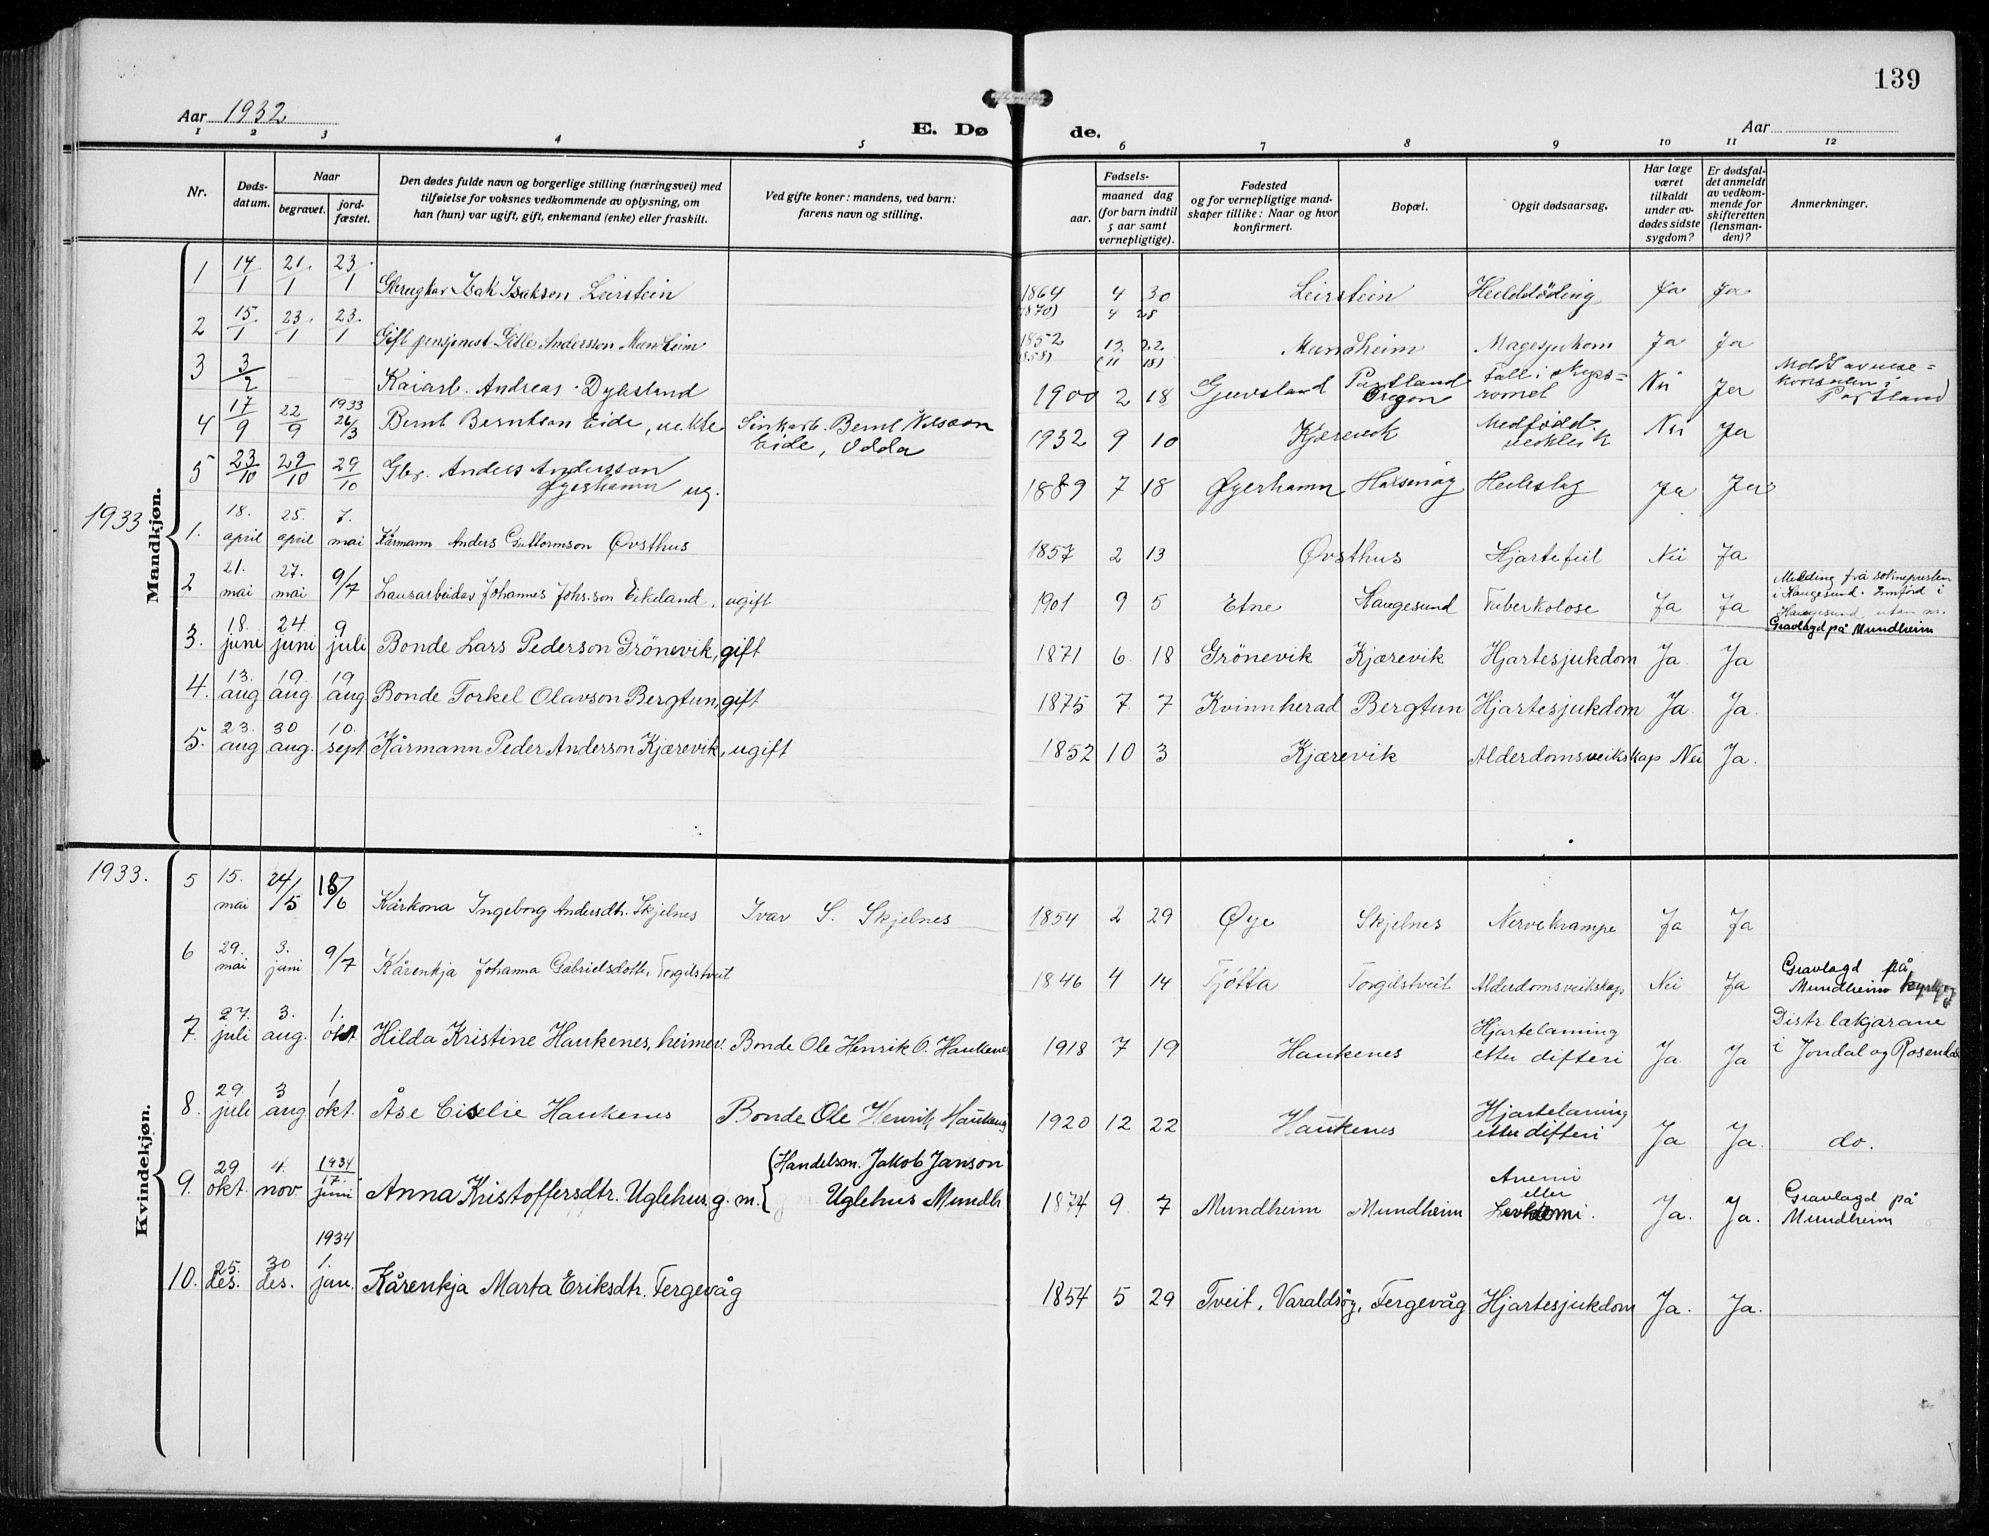 139
Aar 1932
E. Døde.
Aar
1 2 3 4 5 6 7 8 9 10 11 12
Nr.
Døds-
datum.
Naar
begravet.
jord-
fæstet.
Den dødes fulde navn og borgerlige stilling (næringsvei) med
tilføielse for voksnes vedkommende av oplysning, om
han (hun) var ugift, gift, enkemand (enke) eller fraskilt.
Ved gifte koner: mandens, ved barn:
farens navn og stilling.
Fødsels-
aar.
maaned dag
(for barn indtil
5 aar samt
vernepligtige).
Fødested
og for vernepligtige mand-
skaper tillike: Naar og hvor
konfirmert.
Bopæl.
Opgit dødsaarsag.
Har læge
været
tilkaldt
under av-
dødes sidste
sygdom?
Er dødsfal-
det anmeldt
av vedkom-
mende for
skifteretten
(lensman-
den)?
Anmerkninger.
Mandkjøn.
1 14/1 21/1 23/1 Gbrugkar Isak Isakson Leirstein 1864 4 30 Leirstein Ja Ja
(1870) 4 28
2 15/1 23/1 23/1 Gift pensjonist Andersson Mundheim 1852 12 22 Mundheim Magesjukdom Ja Ja
(1858) (11 18)
3 3/2 – – Kaiarb. Andreas Dyksland 1900 2 18 Gjuvsland Portland Oregon Fall i skips-
romet Nei Ja Meldt av vise-
konsulen i
Portland
4 17/9 22/9 1933 26/3 Bernt Berntson Eide, uekte Sinkarb. Bernt Nilsson
Eide, Odda 1932 9 10 Kjærevik Medfødd
veikleik Nei Ja
5 23/10 29/10 29/10 Gbr. Anders Andersson
Øyerhamn ug. 1889 7 18 Øyerhamn Halsenøy Heileslag Ja Ja
1933
1. 18. april 25. april 7. mai Kårmann Anders Guttormson Øvsthus 1857 2 13 Øvsthus Hjartefeil Nei Ja
2 21. mai 27. mai 9/7 Lausarbeidar Johannes Johs.son Eikeland, ugift 1901 9 5 Etne Haugesund Tuberkolose Ja Ja Melding frå soknepresten
i Haugesund. Innførd i
Haugesund utan nr.
Gravlagd på Mundheim
3. 18. juni 24 juni 9 juli Bonde Lars Pederson Grönevik, gift 1871 6 18 Grönevik Kjærevik Hjartesjukdom Ja Ja
4. 13. aug 19. aug. 19 aug Bonde Torkel Olavson Bergtun, gift 1875 7 7 Kvinnherad Bergtun Hjartesjukdom Ja. Ja.
5. 23. aug 30 aug. 10. sept Kårmann Peder Anderson Kjærevik, ugift 1852 10 3 Kjærevik Alderdomsveikskap Nei Ja.
Kvindekjøn.
1933.
5 15. mai 24/5 18/6 Kårkona Ingeborg Andersdtr. Skjelnes Ivar S. Skjelnes 1854 2 29 Øye Skjelnes Nervekrampe Ja Ja
6 29. mai 3. juni 9/7 Kårenkja Johanna Gabrielsdotter Torgilstveit 1846 4 14 Tjötta Torgilstveit Alderdomsveikskap Nei Ja Gravlagd på
Mundheim
7. 27. juli 3. aug. 1. okt Hilda Kristine Haukenes, heimev. Bonde Ole Henrik O. Haukenes 1918 7 19 Haukenes Hjartelaming
etter difteri Ja Ja Distr. lækjarane
i Jondal og Rosendal
8. 29 juli 3 aug 1. okt. Åse Ciselie Haukenes Bonde Ole Henrik Haukenes 1920 12 22 Haukenes Hjartelaming
etter difteri Ja Ja. do.
9. 29 okt. 4. nov 1934 17. juni Anna Kristoffersdtr. Uglehus, g. m. Handelsm. Jakob Janson
Uglehus Mundh 1874 9 7 Mundheim Mundheim Anemi
eller
Levkemi. Ja. Ja. Gravlagd på
Mundheim
10. 25. des. 30 des. 1934 1. jan. Kårenkja Marta Eriksdtr. Tergevåg 1854 5 29 Tveit, Varaldsöy, Tergevåg Hjartesjukdom Ja. Ja.